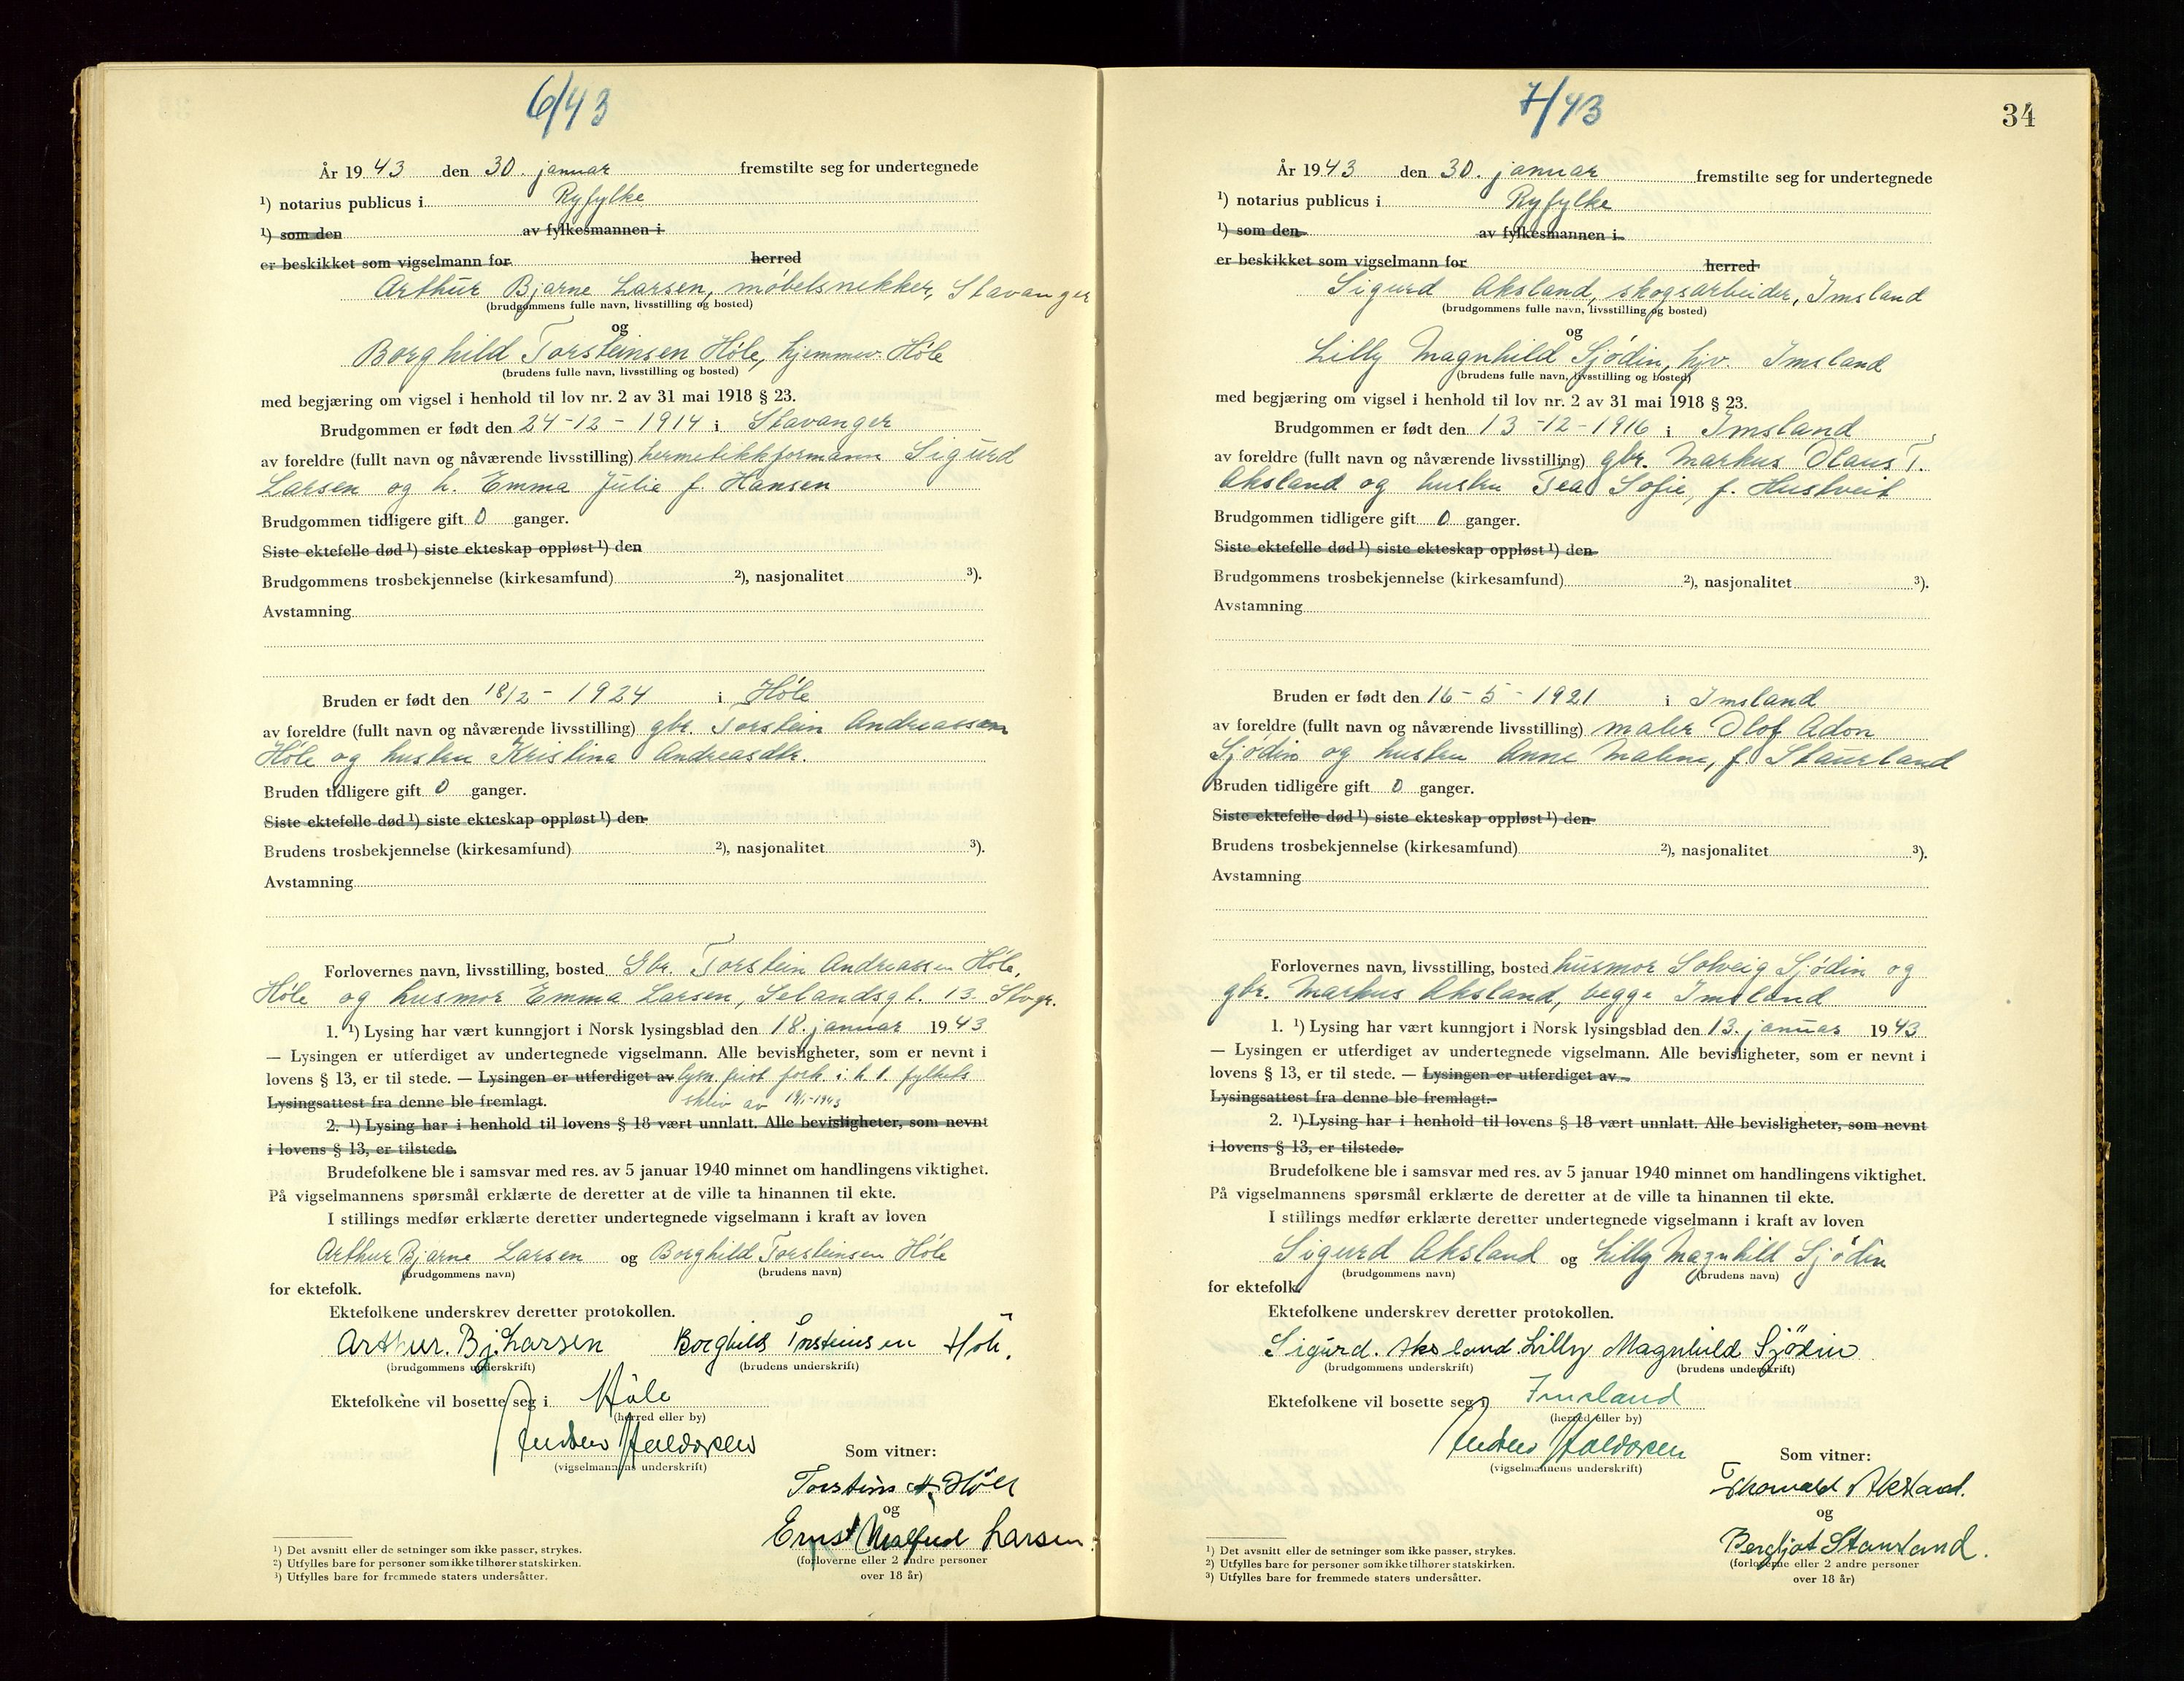 6/43
År 1943 den 30. januar fremstilte seg for undertegnede
¹) notarius publicus i Ryfylke
¹) som den av fylkesmannen i
er beskikket som vigselmann for herred
Arthur Bjarne Larsen, møbelsnekker, Stavanger
(brudgommens fulle navn, livsstilling og bosted)
og
Borghild Torsteinsen Høle, hjemmev. Høle
(brudens fulle navn, livsstilling og bosted)
med begjæring om vigsel i henhold til lov nr. 2 av 31 mai 1918 § 23.
Brudgommen er født den 24-12-1914 i Stavanger
av foreldre (fullt navn og nåværende livsstilling) hermetikkformann Sigurd
Larsen og h. Emma Julie f. Hansen
Brudgommen tidligere gift 0 ganger.
Siste ektefelle død ¹) siste ekteskap oppløst ¹) den
Brudgommens trosbekjennelse (kirkesamfund) ²), nasjonalitet ³).
Avstamning
Bruden er født den 18/2 - 1924 i Høle
av foreldre (fullt navn og nåværende livsstilling) gbr. Torstein Andreassen
Høle og hustru Kristina Andreasdtr.
Bruden tidligere gift 0 ganger.
Siste ektefelle død ¹) siste ekteskap oppløst ¹) den
Brudens trosbekjennelse (kirkesamfund) ²), nasjonalitet ³).
Avstamning
Forlovernes navn, livsstilling, bosted Gbr. Torstein Andreassen Høle,
Høle og husmor Emma Larsen, Selandsgt. 13. Stvgr.
1. ¹) Lysing har vært kunngjort i Norsk lysingsblad den 18. januar 1943
— Lysingen er utferdiget av undertegnede vigselmann. Alle bevisligheter, som er nevnt i
lovens § 13, er til stede. — Lysingen er utferdiget av lysn. frist fork. i h. t. fylkets
Lysingsattest fra denne ble fremlagt. skriv av 19/1-1943
2. ¹) Lysing har i henhold til lovens § 18 vært unnlatt. Alle bevisligheter, som nevnt
i lovens § 13, er tilstede.
Brudefolkene ble i samsvar med res. av 5 januar 1940 minnet om handlingens viktighet.
På vigselmannens spørsmål erklærte de deretter at de ville ta hinannen til ekte.
I stillings medfør erklærte deretter undertegnede vigselmann i kraft av loven
Arthur Bjarne Larsen og Borghild Torsteinsen Høle
(brudgommens navn) (brudens navn)
for ektefolk.
Ektefolkene underskrev deretter protokollen.
Arthur. Bj. Larsen Borghild Torsteinsen Høle.
(brudgommens underskrift) (brudens underskrift)
Ektefolkene vil bosette seg i Høle
(herred eller by)
Halvorsen
(vigselmannens underskrift)
Som vitner:
Torstein A. Høle
og
Ernst Larsen.
(forloverne eller 2 andre personer
over 18 år)
¹) Det avsnitt eller de setninger som ikke passer, strykes.
²) Utfylles bare for personer som ikke tilhører statskirken.
³) Utfylles bare for fremmede staters undersåtter.
7/43
34
År 1943 den 30. januar fremstilte seg for undertegnede
¹) notarius publicus i Ryfylke
¹) som den av fylkesmannen i
er beskikket som vigselmann for herred
Sigurd Aksland, skogsarbeider, Imsland
(brudgommens fulle navn, livsstilling og bosted)
og
Lilly Magnhild Sjødin, hjv. Imsland
(brudens fulle navn, livsstilling og bosted)
med begjæring om vigsel i henhold til lov nr. 2 av 31 mai 1918 § 23.
Brudgommen er født den 13-12-1916 i Imsland
av foreldre (fullt navn og nåværende livsstilling) gbr. Markus Olaus T.
Aksland og hustru Tea Sofie, f. Hustveit
Brudgommen tidligere gift 0 ganger.
Siste ektefelle død ¹) siste ekteskap oppløst ¹) den
Brudgommens trosbekjennelse (kirkesamfund) ²), nasjonalitet ³).
Avstamning
Bruden er født den 16-5-1921 i Imsland
av foreldre (fullt navn og nåværende livsstilling) maler Olof Adon
Sjødin og hustru Anne Malene, f. Staurland
Bruden tidligere gift 0 ganger.
Siste ektefelle død ¹) siste ekteskap oppløst ¹) den
Brudens trosbekjennelse (kirkesamfund) ²), nasjonalitet ³).
Avstamning
Forlovernes navn, livsstilling, bosted husmor Solveig Sjødin og
gbr. Markus Aksland, begge Imsland
1. ¹) Lysing har vært kunngjort i Norsk lysingsblad den 13. januar 1943
— Lysingen er utferdiget av undertegnede vigselmann. Alle bevisligheter, som er nevnt i
lovens § 13, er til stede. — Lysingen er utferdiget av
Lysingsattest fra denne ble fremlagt.
2. ¹) Lysing har i henhold til lovens § 18 vært unnlatt. Alle bevisligheter, som nevnt
i lovens § 13, er tilstede.
Brudefolkene ble i samsvar med res. av 5 januar 1940 minnet om handlingens viktighet.
På vigselmannens spørsmål erklærte de deretter at de ville ta hinannen til ekte.
I stillings medfør erklærte deretter undertegnede vigselmann i kraft av loven
Sigurd Aksland og Lilly Magnhild Sjødin
(brudgommens navn) (brudens navn)
for ektefolk
Ektefolkene underskrev deretter protokollen.
Sigurd. Aksland Lilly Magnhild Sjödin
(brudgommens underskrift) (brudens underskrift)
Ektefolkene vil bosette seg i Imsland
(herred eller by)
Halvorsen
(vigselmannens underskrift)
Som vitner:
Thorvald Aksland.
og
Bergljot Staurland.
(forloverne eller 2 andre personer
over 18 år)
¹) Det avsnitt eller de setninger som ikke passer, strykes.
²) Utfylles bare for personer som ikke tilhører statskirken.
³) Utfylles bare for fremmede staters undersåtter.